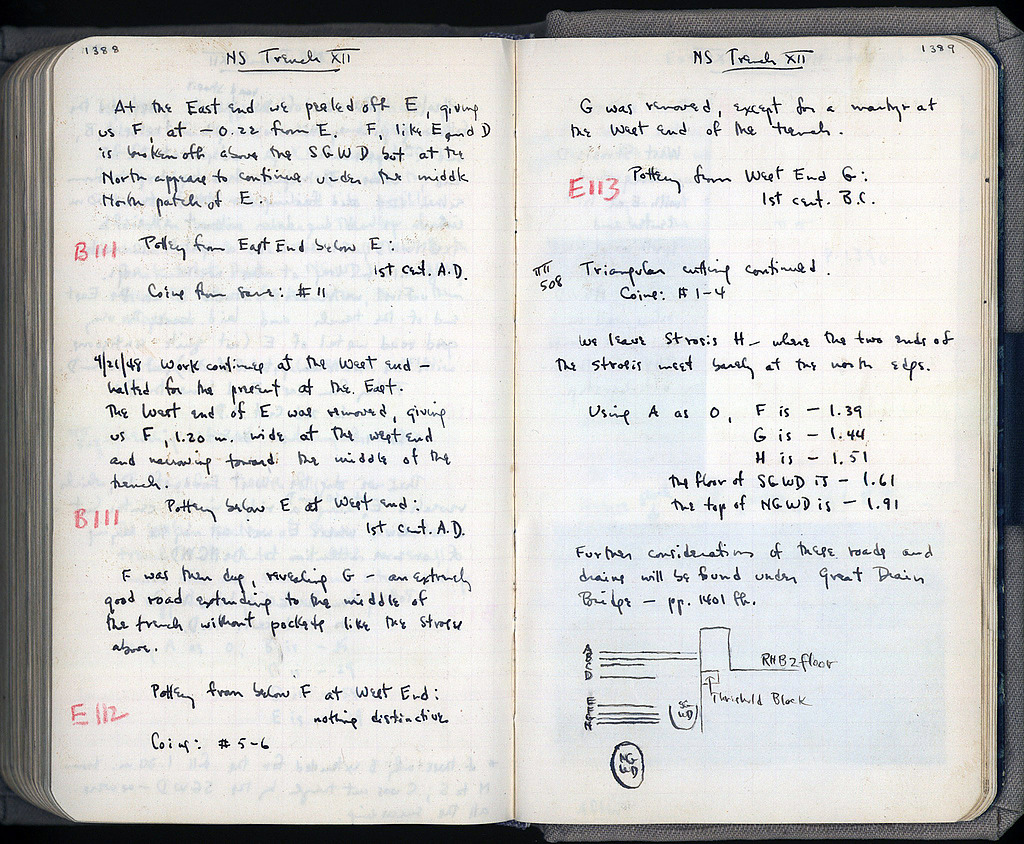 1388
NS Trench XII
At the East end we pealed off E, giving
us F, at – 0.22 from E. F, like E and D
is broken off above the SGWD, but at the
North appears to continue under the middle
North patch of E.
B 111
Pottery from East End below E:
1st cent. A.D.
Coins from same: #11
4/21/48 Work continues at the West end –
halted for the present at the East.
The West end of E was removed, giving
us F, 1.20 m. wide at the west end
and narrowing toward the middle of the
trench.
B 111
Pottery below E at West end:
1st cent. A.D.
F was then dug, revealing G – an extremely
good road extending to the middle of
the trench without pockets like the stroses
above.
Pottery from below F at West End:
E 112
nothing distinctive
Coins: #5-6
1389
NS Trench XII
G was removed, except for a martyr at
the West end of the trench.
E 113
Pottery from West End G:
1st cent. B.C.
ΠΠ
508
Triangular cutting continued.
Coins: #1-4
We leave Strosis H – where the two ends of
the strosis meet barely at the north edge.
Using A as 0, F is – 1.39
G is – 1.44
H is – 1.51
the floor of SGWD is – 1.61
the top of NGWD is – 1.91
Further considerations of these roads and
drains will be found under Great Drain
Bridge – pp. 1401 ff.
A
B
C
D
RHB 2 floor
Threshold Block
E
F
G
H
SG
WD
NG
WD